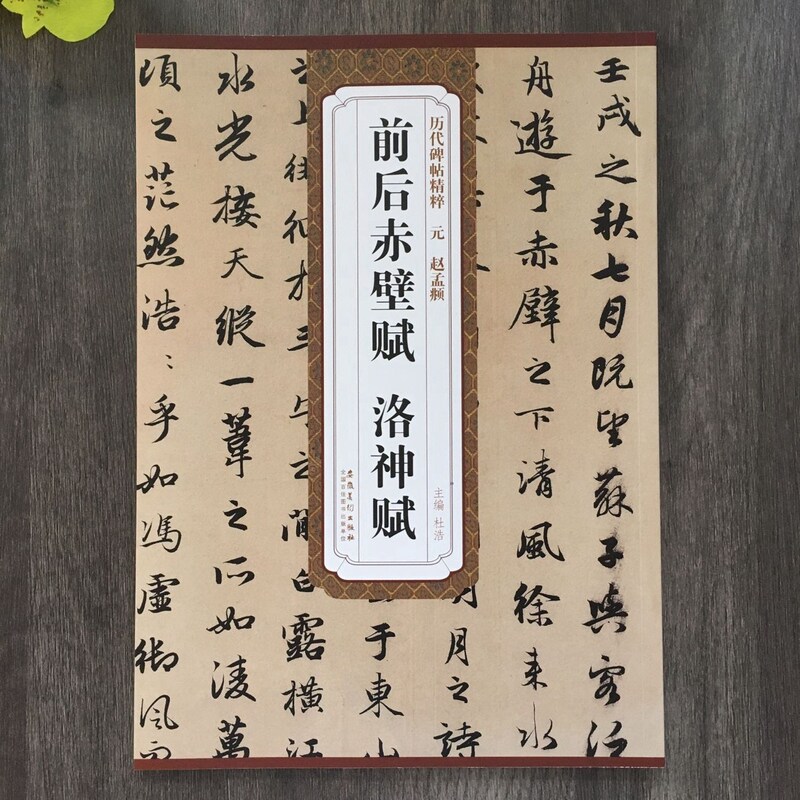 壬戌之秋七月既望蘇子與客泛
舟遊于赤壁之下清風徐来水
月之詩
于東山
之間白露橫江
水光接天縱一葦之所如凌萬
頃之茫然浩〻乎如馮虛御風而
历代碑帖精粹 元 赵孟頫
主编 杜浩
前后赤壁赋 洛神赋
安徽美术出版社
全国百佳图书出版单位